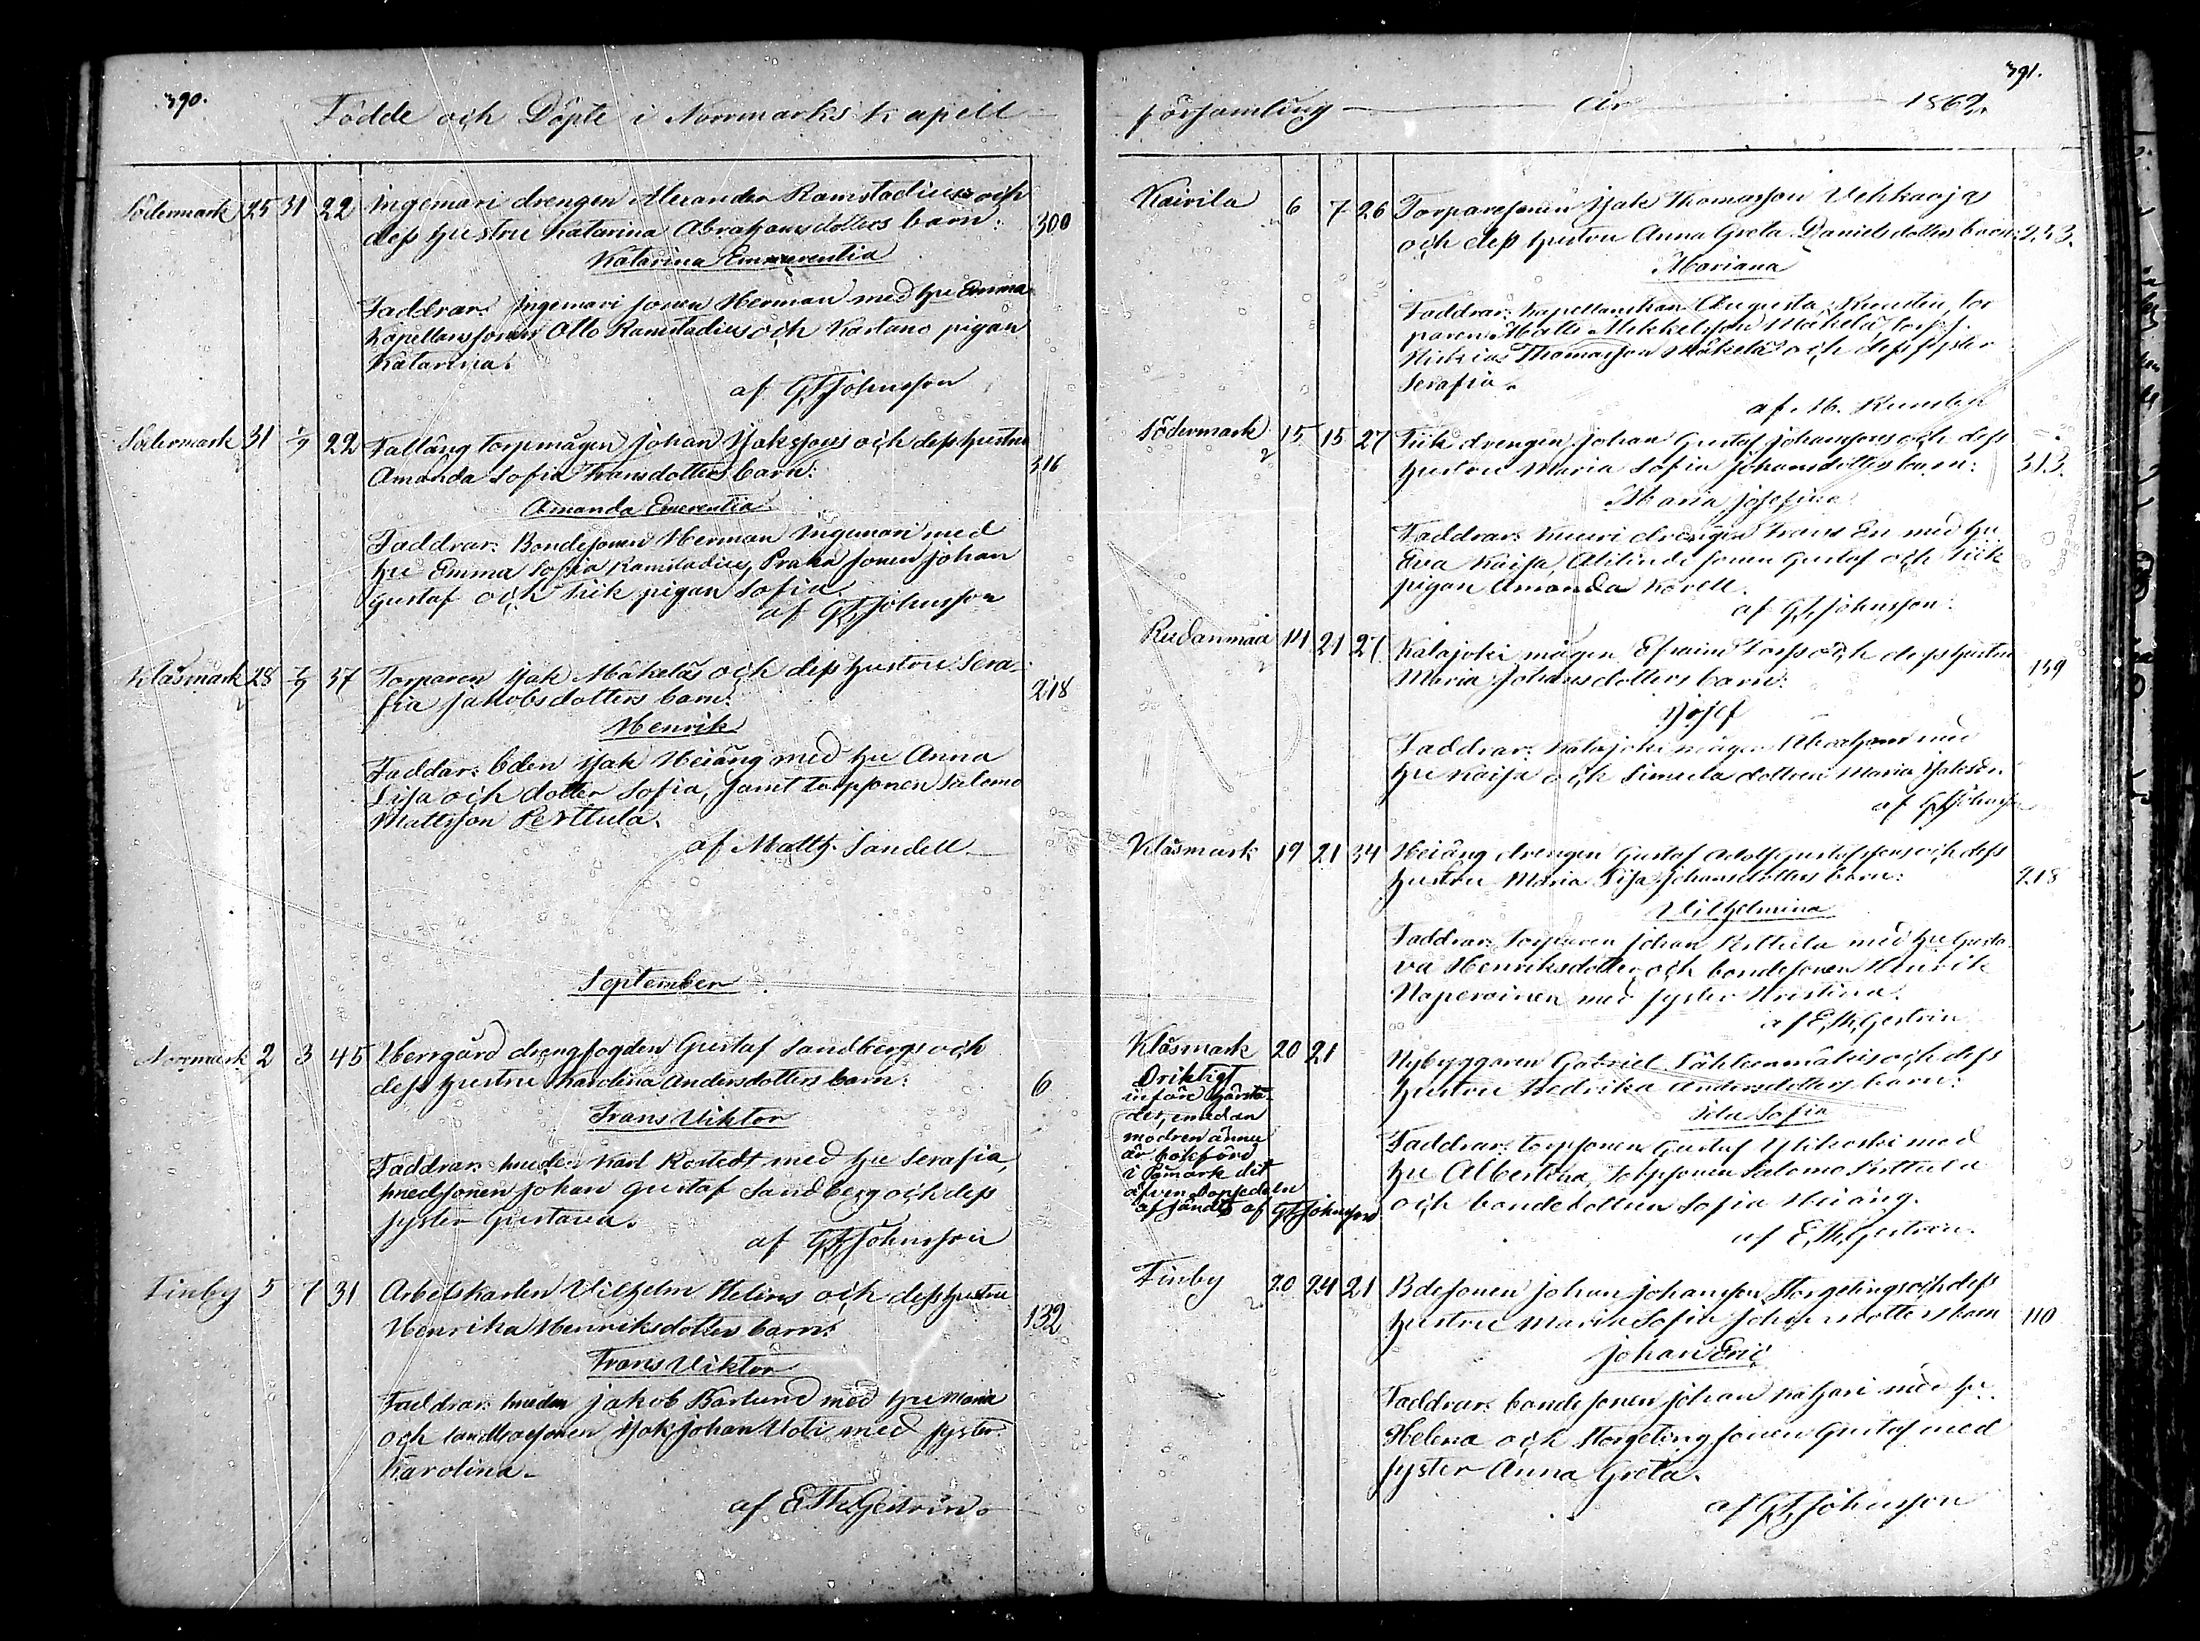 390.
Födde och Döpte i Norrmarks kapell
Södermark 25 31 22 Ingemari drengen Alexander Ramstadius och
dess hustru Katarina Abrahamsdotters barn: 300
Katarina Emerentia
Faddrar: Ingemari sonen Herman med hu Emma
Kapellanssonen Otto Ramstadius och Kartano pigan
Katarina.
af G.F. Johnsson
Södermark 31 1/9 22 Talläng torpmågen Johan Isakssons och dess hustru
Amanda Sofia Fransdotters barn: 316
Amanda Emerentia
Faddrar: Bondesonen Herman Ingemari med
hu Emma Sofia Ramstadius, Sonen Johan
Gustaf och Frik pigan Sofia.
af G.F. Johnsson
Klåsmark 28 7/9 37 Torparen Isak Mäkeläs och dess hustru Sera-
fia Jakobsdotters barn: 218
Henrik
Faddrar: bden Isak Heiäng med hu Anna
Lisa och dotter Sofia, samt torpsonen Salomo
Mattsson Perttula.
af Matth. Sandell
September
Norrmark 2 3 45 Herrgård drengfogden Gustaf Sandbergs och
dess hustru Karolina Andersdotters barn: 6
Frans Viktor
Faddrar: smeden Karl Rostedt med hu Serafia,
smedsonen Johan Gustaf Sandberg och dess
syster Gustava.
af G.F. Johnsson
Finby 5 7 31 Arbetskarlen Vilhelm Helins och dess hustru
Henrika Henriksdotters barn: 132
Frans Viktor
Faddrar: smeden Jakob Barlund med hu Maria
och sonen Isak Johan Uoti med syster
Karolina.
af E.Th. Gestrin.
391.
församling År 1862.
Kairila 6 7 26 Torparesonen Isak Thomasson Vehkaojas
och dess hustru Anna Greta Danielsdotters barn: 253.
Mariana
Faddrar: Kapellanskan Augusta Kumlin, tor
paren Matts Mikkelsson Mäkelä, torp s.
Thomasson Mäkelä och dess syster
Serafia.
af M. Kumlin
Södermark 15 15 27 Frik drengen Johan Gustaf Johanssons och dess
hustru Maria Sofia Johansdotters barn: 313.
Maria Josefina
Faddrar: Knuuri drengen Frans En med hu
Eva Kaisa, Alilindi sonen Gustaf och Frik
pigan Amanda Korell.
af G.F. Johnsson.
Rudanmaa 14 21 27 Kalajoki mågen Efraim Torp och dess hustru
Maria Johansdotters barn: 159
Josef
Faddrar: Kalajoki mågen Abraham med
hu Kaisa och Simula dottren Maria Isaksdr.
af G.F. Johnsson
Klåsmark 19 21 34 Heiäng drengen Gustaf Adolf Gustafssons och dess
hustru Maria Lisa Johansdotters barn: 218
Vilhelmina
Faddrar: Torparen Johan Perttula med hu Gusta
va Henriksdotter och bondesonen Henrik
Haperoinen med syster Kristina.
af E.Th. Gestrin
Klåsmark 20 21 Nybyggaren Gabriel Tähkänmäkis och dess
hustru Hedvika Andersdotters barn:
Ida Sofia
Oriktigt
införe härstä-
des, emedan
modren ännu
är bokförd
i Påmark dit
äfven dopsedeln
afsändts af G.F. Johnsson
Faddrar: torpsonen Gustaf Ylikoski med
hu Albertina, torpsonen Salomo Perttula
och bondedottren Sofia Heiäng.
af E.Th. Gestrin.
Finby 20 24 21 Bdesonen Johan Johansson Storgelings och dess
hustru Maria Sofia Johansdotters barn 110
Johan Eric
Faddrar: bondesonen Johan Kahari med hu
Helena och Storgeling sonen Gustaf med
syster Anna Greta.
af G.F. Johnsson